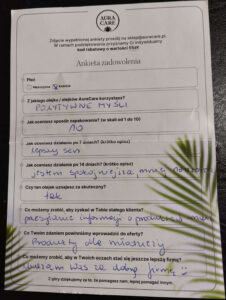 AURA
CARE
Zdjęcie wypełnionej ankiety prześlij na sklep@auracare.pl.
W ramach podziękowania przyznamy Ci indywidualny
kod rabatowy o wartości 15zł!
Ankieta zadowolenia
Płeć
Mężczyzna Kobieta
Z jakiego olejku / olejków AuraCare korzystasz?
POZYTYWNE MYŚLI
Jak oceniasz sposób zapakowania? (w skali od 1 do 10)
10
Jak oceniasz działanie po 7 dniach? (krótko opisz)
lepszy sen
Jak oceniasz działanie po 14 dniach? (krótko opisz)
jestem spokojniejsza, mniej
Czy ten olejek uznajesz za skuteczny?
tak
Co możemy zrobić, aby zyskać w Tobie stałego klienta?
informacji o
Co Twoim zdaniem powinniśmy wprowadzić do oferty?
Produkty dla
Co możemy zrobić, aby w Twoich oczach stać się jeszcze lepszą firmą?
uważam Was za dobrą firmę
Z góry dziękujemy za to, że pomagasz nam, lepiej pomagać innym.